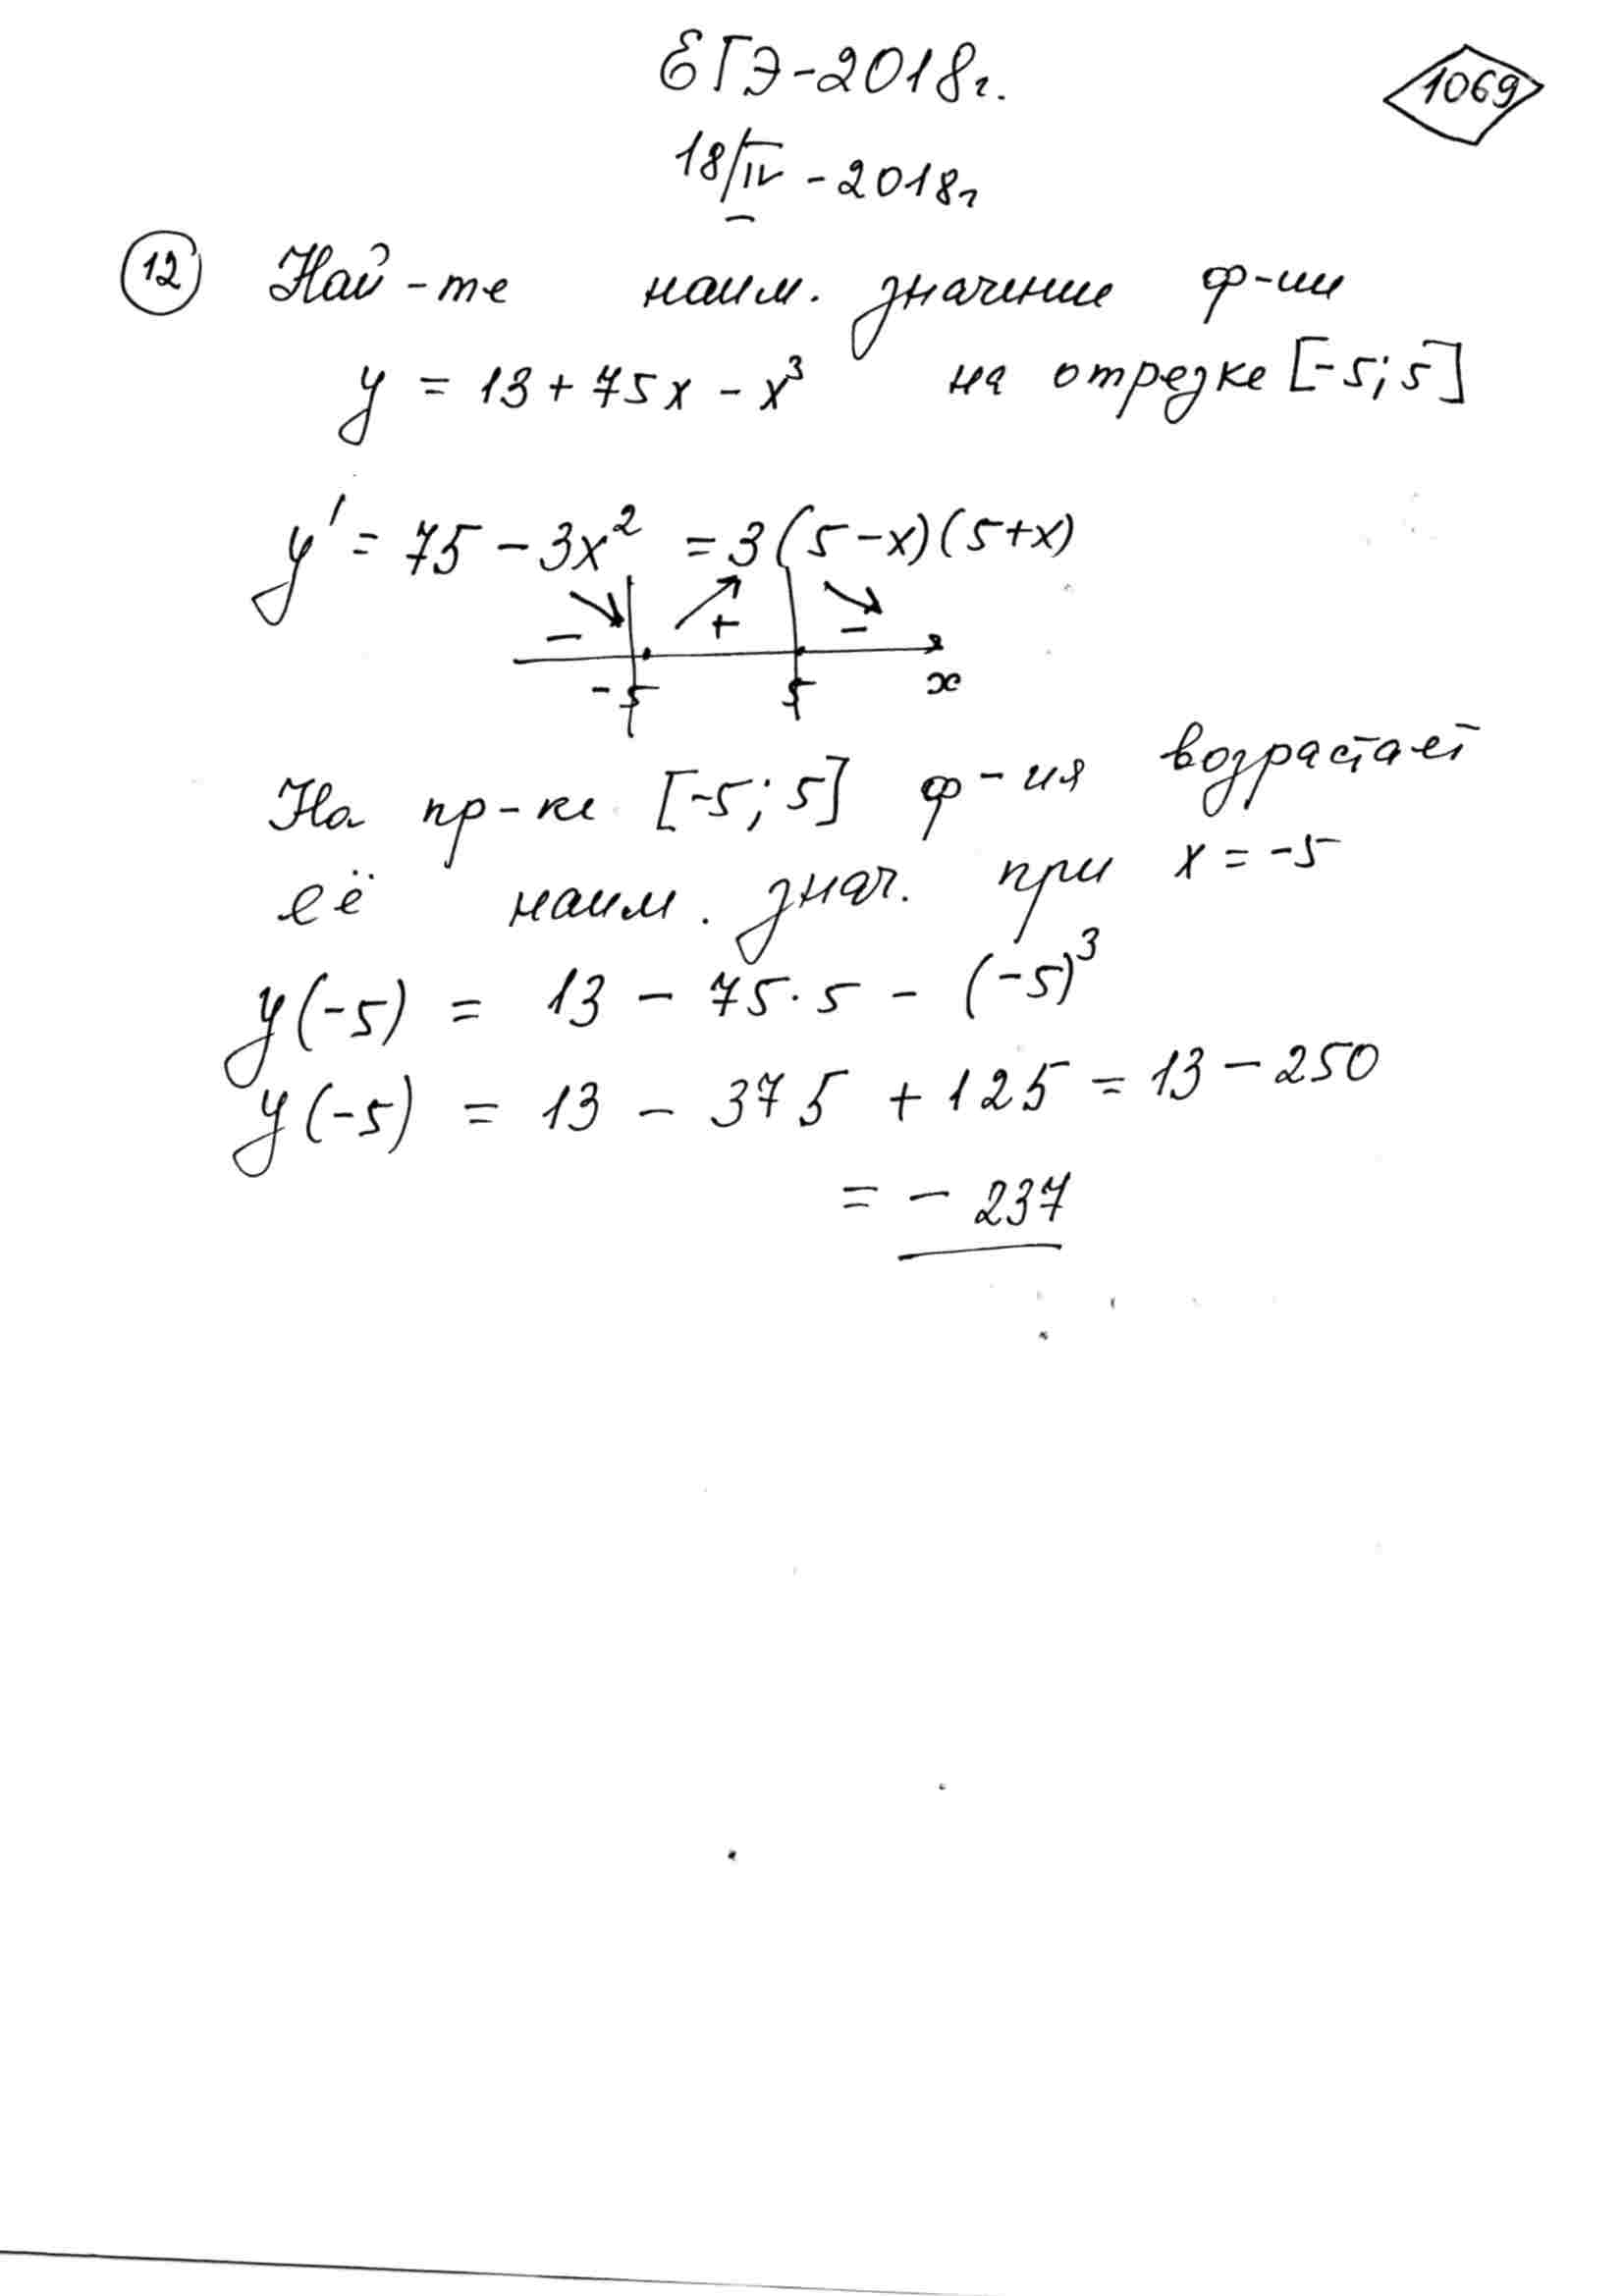 ЕГЭ-2018г.
1069
18/IV-2018г
12 Най-те наим. значение ф-ии
y = 13 + 75x - x³ на отрезке [-5; 5]
y' = 75 - 3x² = 3(5-x)(5+x)
- + -
-5 5 x
На пр-ке [-5; 5] ф-ия возрастает
её наим. знач. при x = -5
y(-5) = 13 - 75·5 - (-5)³
y(-5) = 13 - 375 + 125 = 13 - 250
= - 237